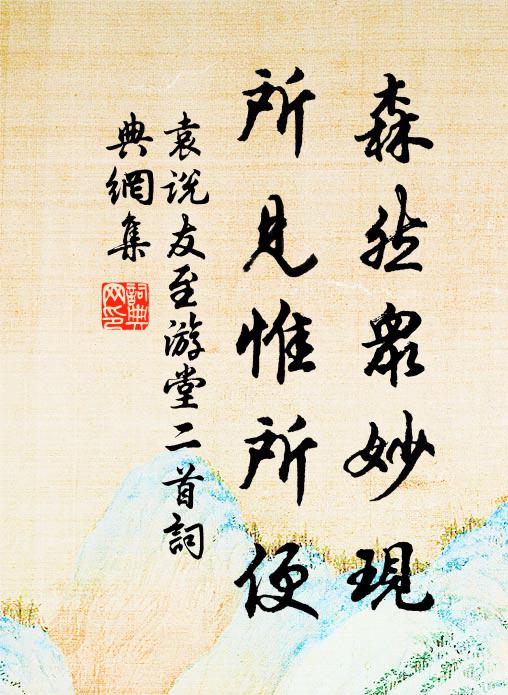 森然眾妙現
所見惟所便
袁说友至游堂二首詞
典網集
詞典
网印